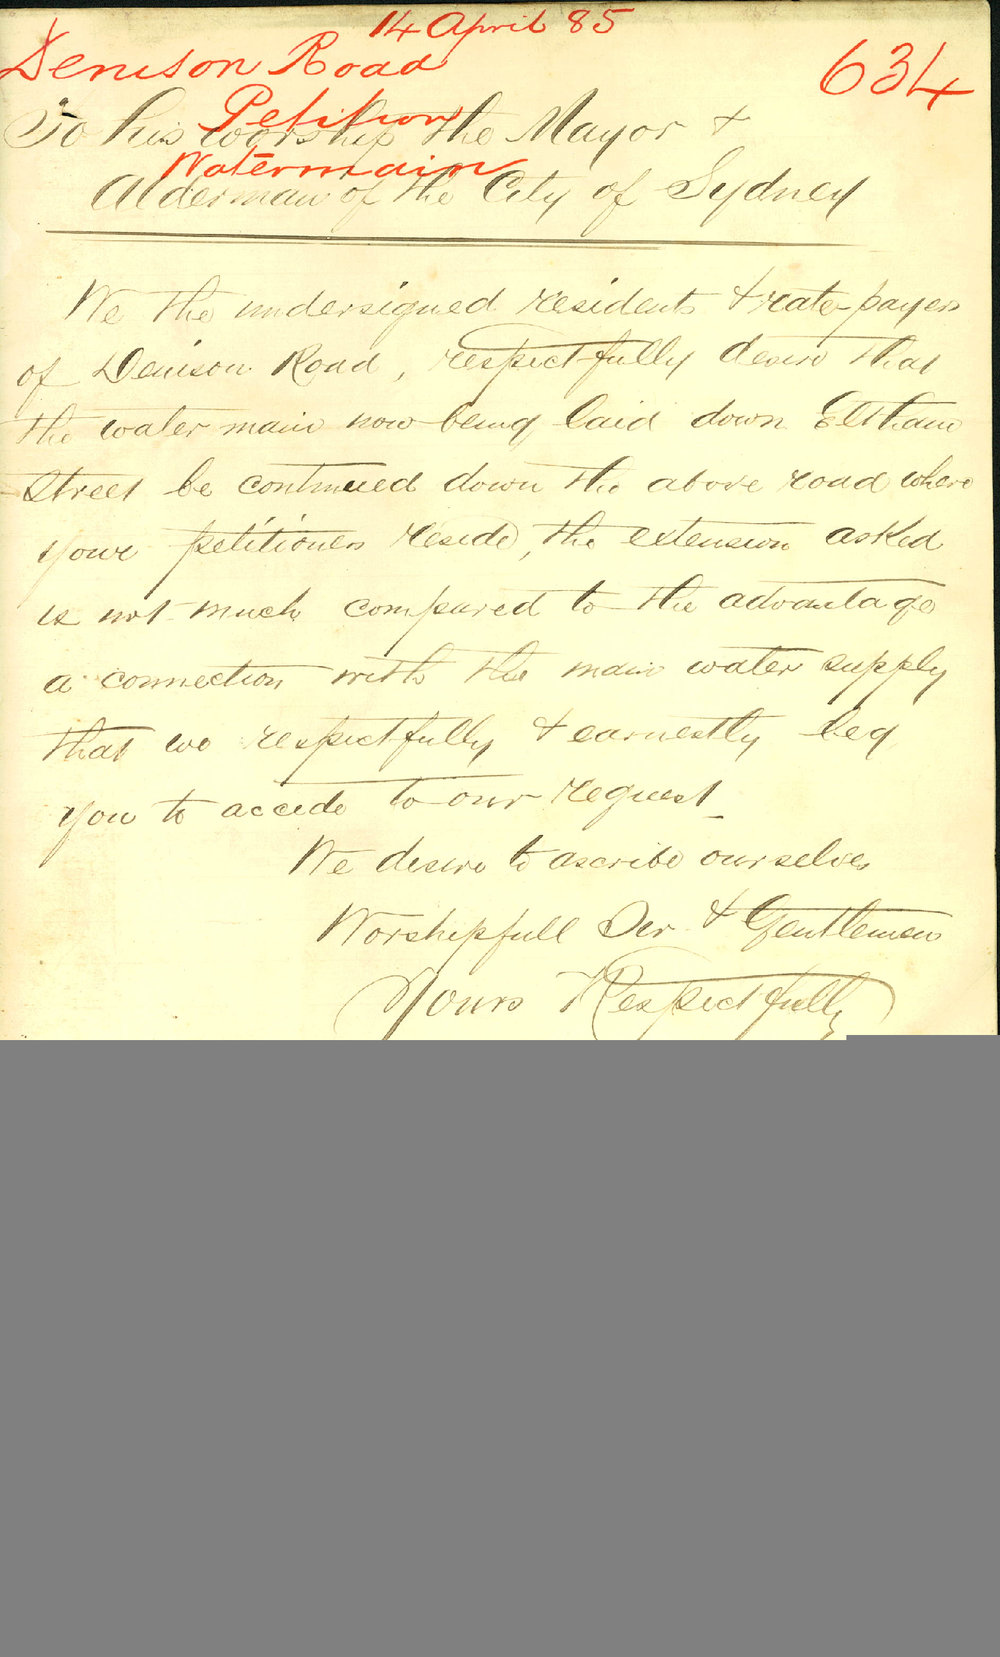 14 April 85
Denison Road
634
Petition
To his worship the Mayor &
Watermain
Alderman of the City of Sydney
We the undersigned residents & rate-payers
of Denison Road, respectfully desire that
the water main now being laid down Eltham
Street be continued down the above road where
your petitioners reside, the extension asked
is not much compared to the advantage
a connection with the main water supply
that we respectfully & earnestly beg
you to accede to our request
We desire to ascribe ourselves
Worshipfull Sir & Gentlemen
Yours Respectfully